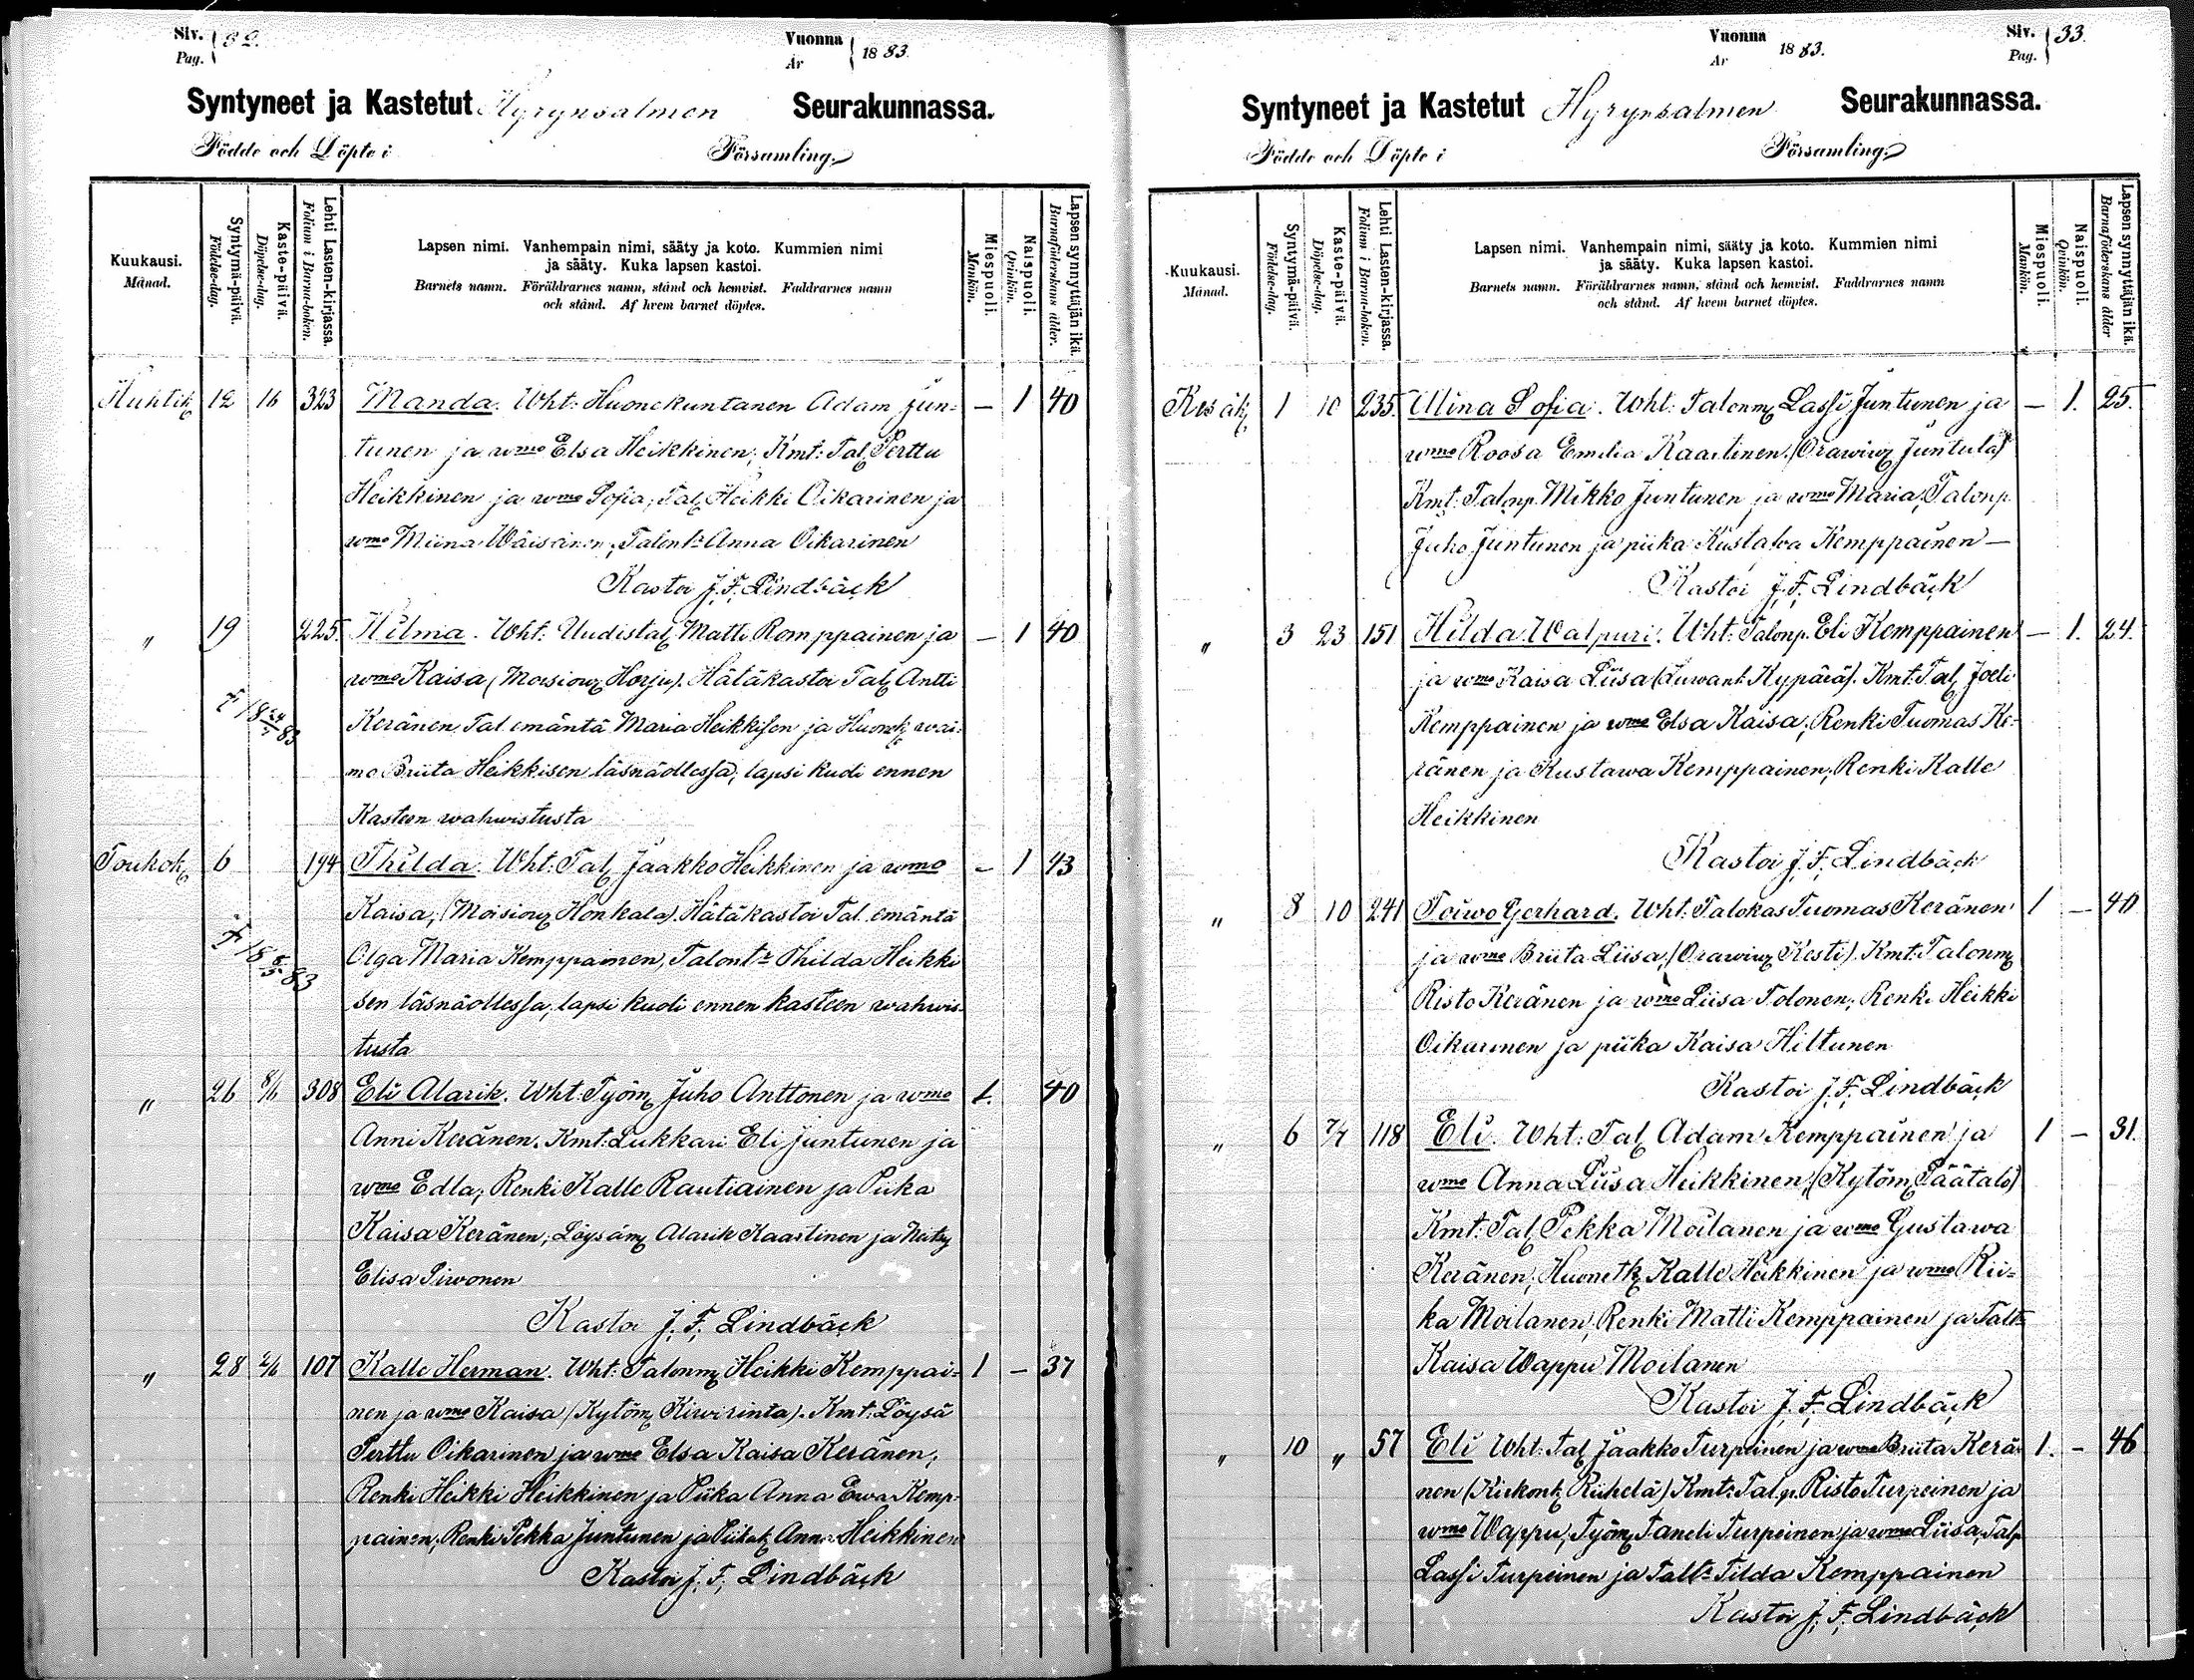 Siv. 32.
Pag.
Vuonna 1883.
År
Syntyneet ja Kastetut Hyrynsalmen Seurakunnassa.
Födde och Döpte i Församling.
Kuukausi.
Månad.
Syntymä-päivä.
Födelse-dag.
Kaste-päivä.
Döpelse-dag.
Lehti Lasten-kirjassa.
Folium i Barna-boken.
Lapsen nimi. Vanhempain nimi, sääty ja koto. Kummien nimi
ja sääty. Kuka lapsen kastoi.
Barnets namn. Föräldrarnes namn, stånd och hemvist. Faddrarnes namn
och stånd. Af hvem barnet döptes.
Miespuoli.
Mankön.
Naispuoli.
Qvinkön.
Lapsen synnyttäjän ikä.
Barnaföderskans ålder.
Huhtik 12 16 323 Manda. Wht: Huonekuntanen Adam Jun- — 1 40
tunen ja wmo Elsa Heikkinen; Kmt: Tal. Perttu
Heikkinen ja wmo Sofia; Tal. Heikki Oikarinen ja
wmo Miina Wäisäinen; Talont. Anna Oikarinen
Kastoi J. F. Lindbäck
" 19 225. Hilma. Wht: Uudistal. Matti Romppainen ja — 1 40
wmo Kaisa (Moisiow. Horju). Hätäkastoi Tal. Antti
† 18 24/4 83 Keränen Tal. emäntä Maria Heikkisen ja Huonek. wai-
mo Briita Heikkisen läsnäollessa; lapsi kuoli ennen
Kasteen wahwistusta
Toukok 6 194 Thilda. Wht: Tal. Jaakko Heikkinen ja wmo — 1 43
Kaisa; (Moisiow. Honkala). Hätäkastoi Tal. emäntä
† 18 6/5 83 Olga Maria Kemppainen, Talont. Thilda Heikki
sen läsnäollessa, lapsi kuoli ennen kasteen wahwis-
tusta
" 26 8/6 308 Eli Alarik. Wht: Työm. Juho Anttonen ja wmo 1. 40
Anni Keränen. Kmt: Lukkari Eli Juntunen ja
wmo Edla; Renki Kalle Rautiainen ja Piika
Kaisa Keränen; Löysäm. Alarik Kaartinen ja
Elisa Piwonen
Kastoi J. F. Lindbäck
" 28 2/6 107 Kalle Herman. Wht: Talonm. Heikki Kemppai- 1 — 37
nen ja wmo Kaisa (Kytöm. Kiwirinta). Kmt: Löysä
Perttu Oikarinen ja wmo Elsa Kaisa Keränen;
Renki Heikki Heikkinen ja Piika Anna Ewa Kemp-
painen; Renki Pekka Juntunen ja Anna Heikkinen
Kastoi J. F. Lindbäck
Vuonna 1883.
År
Siv. 33.
Pag.
Syntyneet ja Kastetut Hyrynsalmen Seurakunnassa.
Födde och Döpte i Församling.
Kuukausi.
Månad.
Syntymä-päivä.
Födelse-dag.
Kaste-päivä.
Döpelse-dag.
Lehti Lasten-kirjassa.
Folium i Barna-boken.
Lapsen nimi. Vanhempain nimi, sääty ja koto. Kummien nimi
ja sääty. Kuka lapsen kastoi.
Barnets namn. Föräldrarnes namn, stånd och hemvist. Faddrarnes namn
och stånd. Af hvem barnet döptes.
Miespuoli.
Mankön.
Naispuoli.
Qvinkön.
Lapsen synnyttäjän ikä.
Barnaföderskans ålder
Kesäk 1 10 235. Miina Sofia. Wht: Talonm. Lassi Juntunen ja — 1. 25.
wmo Roosa Emilia Kaartinen. (Orawiw. Juntula)
Kmt: Talonp. Mikko Juntunen ja wmo Maria; Talonp.
Juho Juntunen ja piika Kustawa Kemppainen —
Kastoi J. F. Lindbäck
" 3 23 151 Hilda Walpuri. Wht: Talonp. Eli Kemppainen — 1. 24.
ja wmo Kaisa Liisa (Luwank. Kypärä). Kmt: Tal. Joeli
Kemppainen ja wmo Elsa Kaisa; Renki Tuomas Ke-
ränen ja Kustawa Kemppainen; Renki Kalle
Heikkinen
Kastoi J. F. Lindbäck
" 8 10 241 Toiwo Gerhard. Wht: Talokas Tuomas Keränen 1 — 40
ja wmo Briita Liisa; (Orawiw. Kesti). Kmt: Talonm.
Risto Keränen ja wmo Liisa Tolonen; Renki Heikki
Oikarinen ja piika Kaisa Hiltunen
Kastoi J. F. Lindbäck
" 6 7/7 118 Eli. Wht: Tal. Adam Kemppainen ja 1 — 31.
wmo Anna Liisa Heikkinen; (Kytöm. Päätalo)
Kmt: Tal. Pekka Moilanen ja wmo Gustawa
Keränen; Huonetk. Kalle Heikkinen ja wmo Rii-
ka Moilanen; Renki Matti Kemppainen ja Talt.
Kaisa Wappu Moilanen
Kastoi J. F. Lindbäck
" 10 " 57 Eli Wht: Tal. Jaakko Turpeinen ja wmo Briita Kerä- 1. — 46
nen (Kirkonk. Riihelä) Kmt: Tal.p. Risto Turpeinen ja
wmo Wappu; Työm. Taneli Turpeinen ja wmo Liisa; Talp.
Lassi Turpeinen ja Talt. Tilda Kemppainen
Kastoi J. F. Lindbäck